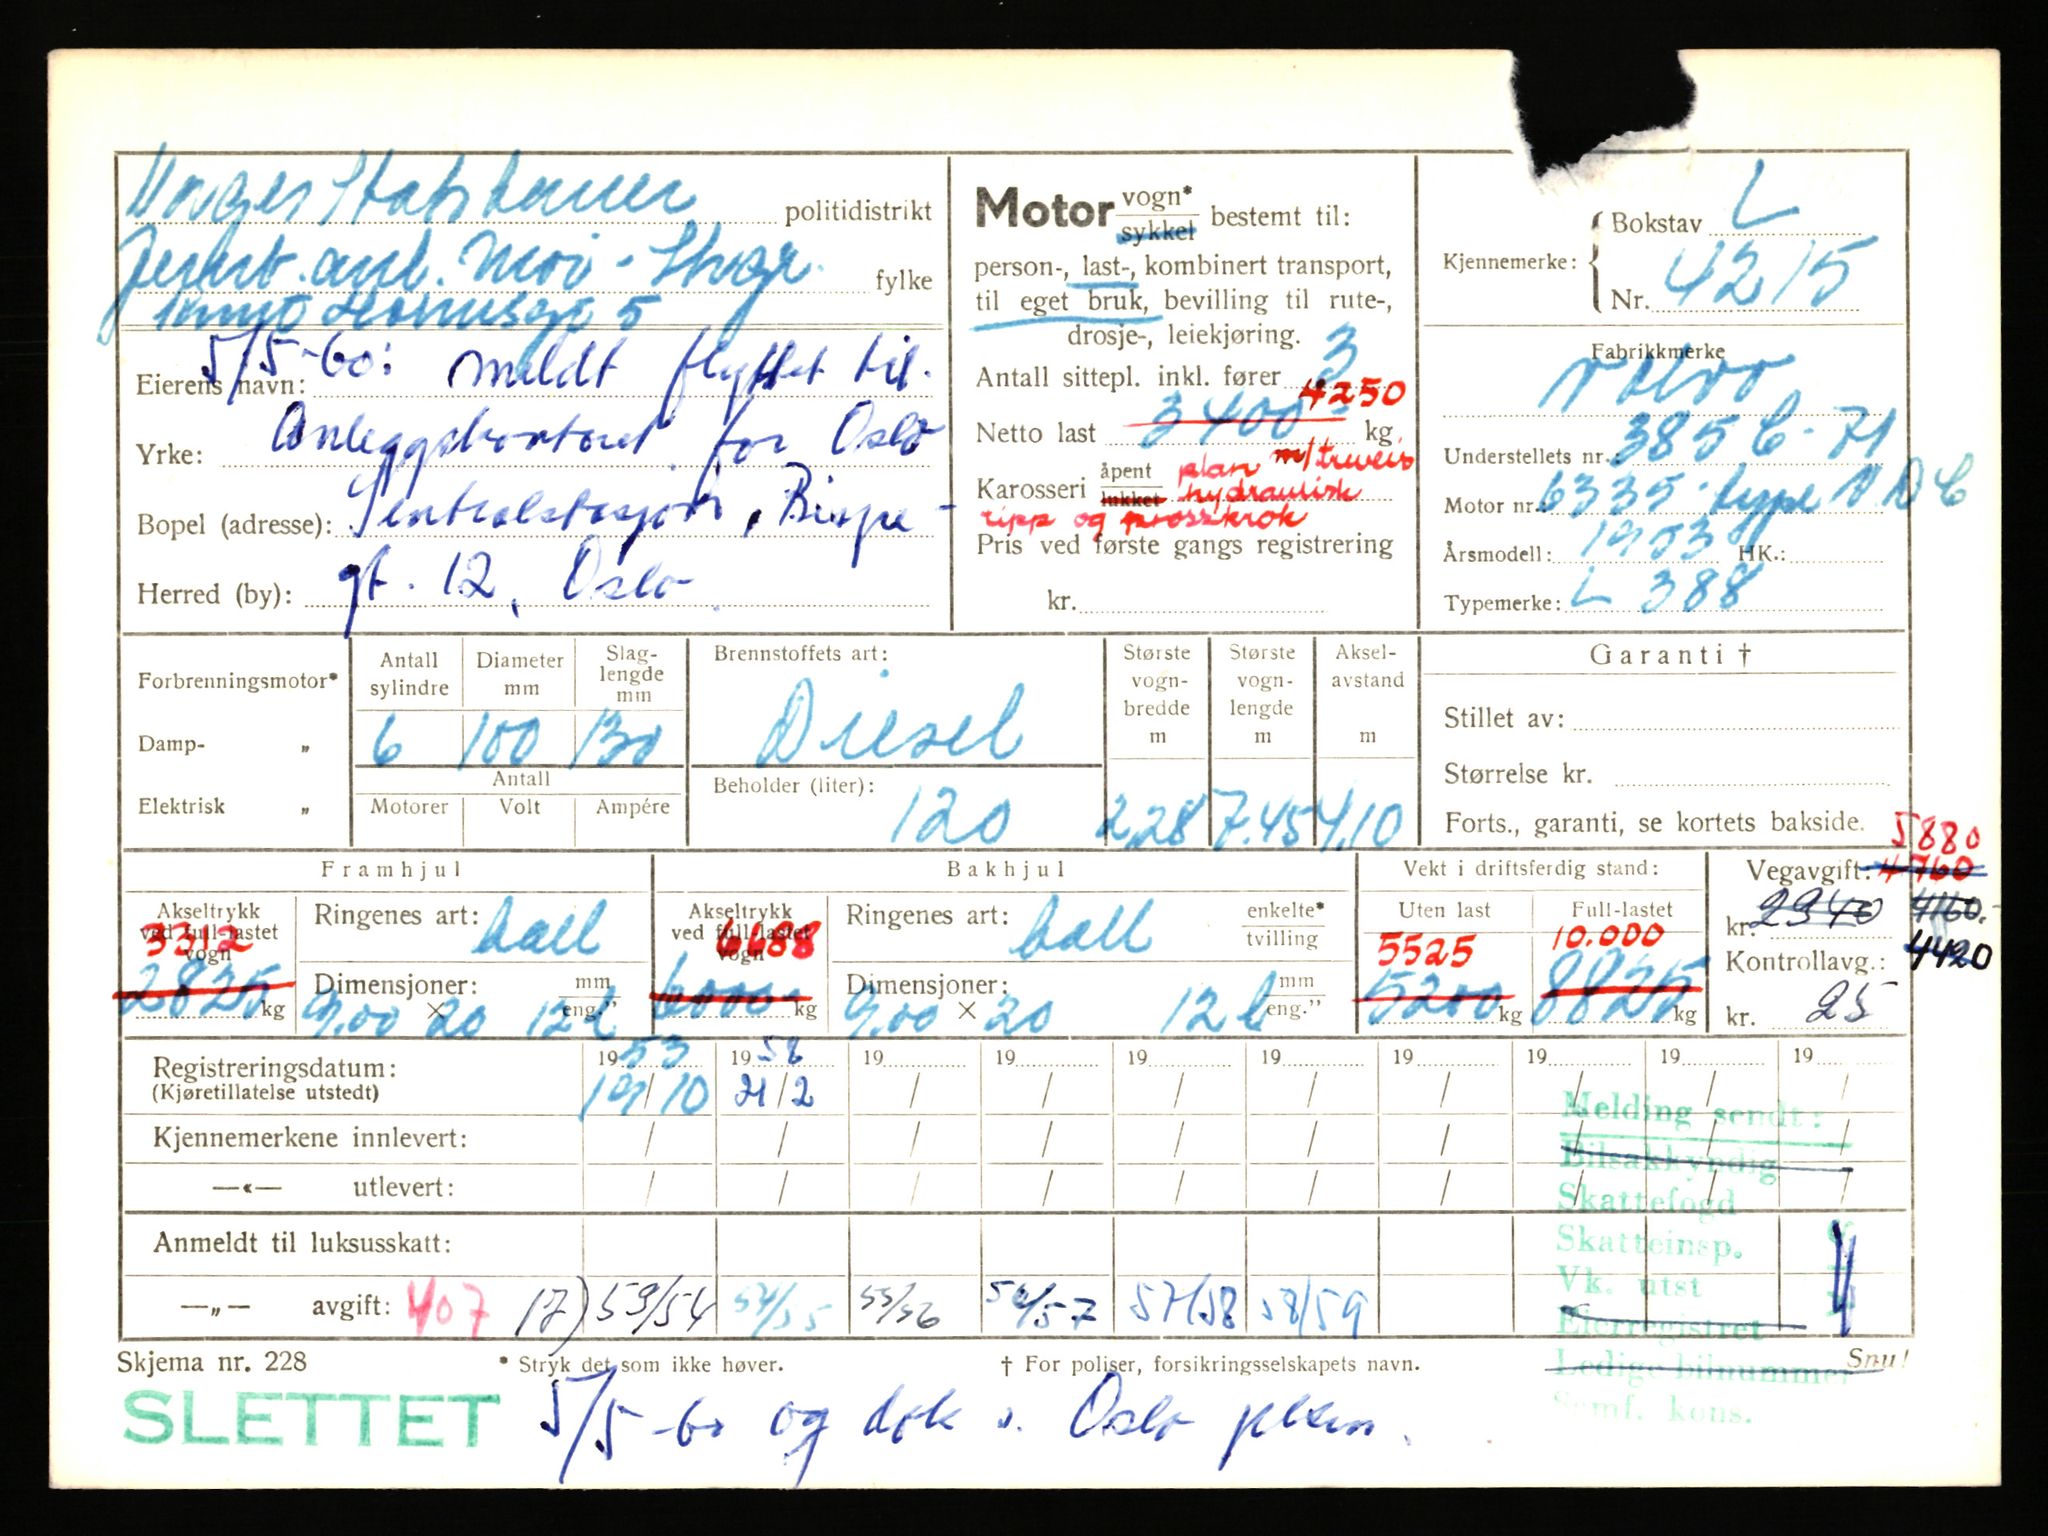 Norges Statsbaner politidistrikt
anl. Moi - fylke
5
Eierens navn: 5/5-60: meldt flyttet til
Yrke: Anleggskontoret for Oslo
Bopel (adresse): Sentralstasjon, Bispe-
Herred (by): gt. 12, Oslo
Motor vogn* sykkel bestemt til:
person-, last-, kombinert transport,
til eget bruk, bevilling til rute-,
drosje-, leiekjøring.
Antall sittepl. inkl. fører 3
4250
Netto last 3400 kg
Karosseri åpent lukket plan m/treveis
hydraulisk
tipp og prosskrok
Pris ved første gangs registrering
kr.
Kjennemerke: Bokstav L
Nr. 4215
Fabrikkmerke
Volvo
Understellets nr.: 385 C-71
Motor nr. 6335 type V D C
Årsmodell: 1953 HK.:
Typemerke: L 388
Forbrenningsmotor*
Damp- „
Elektrisk „
Antall sylindre 6
Diameter mm 100
Slag-lengde mm 130
Antall
Motorer Volt Ampére
Brennstoffets art:
Diesel
Beholder (liter):
120
Største vogn-bredde m 2,28
Største vogn-lengde m 7.45
Aksel-avstand m 4,10
Garanti †
Stillet av:
Størrelse kr.
Forts., garanti, se kortets bakside.
Framhjul
Akseltrykk ved full-lastet vogn
3312
2825 kg
Ringenes art: ball
Dimensjoner: mm eng."
9.00 × 20 12 l
Bakhjul
Akseltrykk ved full-lastet vogn
6688
6000 kg
Ringenes art: ball enkelte* tvilling
Dimensjoner: mm eng."
9.00 × 20 12 l
Vekt i driftsferdig stand:
Uten last Full-lastet
5525 10.000
5200 kg 8825 kg
5880
Vegavgift: 4760
kr. 2340 4160.-
Kontrollavg.: 4420
kr. 25
Registreringsdatum: 1953 1958 19 19 19 19 19 19 19 19
(Kjøretillatelse utstedt) 19/10 21/2 / / / / / / / /
Kjennemerkene innlevert: / / / / / / / / /
—«— utlevert: / / / / / / / / /
Anmeldt til luksusskatt:
—„— avgift: 407 17) 53/54 54/55 55/56 56/57 57/58 58/59
Melding sendt:
Bilsakkyndig
Skattefogd
Skatteinsp.
Vk. utst
Eierregistret
Ledige bilnummer
Sumf. kons.
Skjema nr. 228 * Stryk det som ikke høver. † For poliser, forsikringsselskapets navn. Snu!
SLETTET 5/5-60 og dok s. Oslo